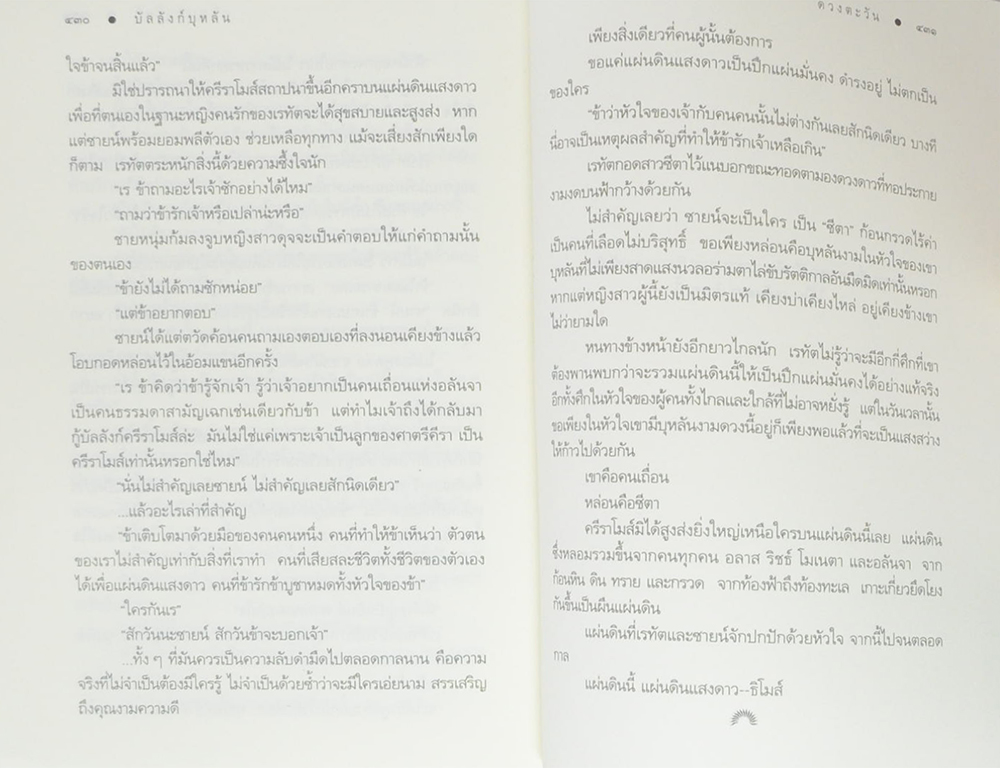 ๔๓๐ ● บัลลังก์บุหลัน
ใจข้าจนสิ้นแล้ว”
มิใช่ปรารถนาให้ครีราโมส์สถาปนาขึ้นอีกคราบนแผ่นดินแสงดาว
เพื่อที่ตนเองในฐานะหญิงคนรักของเรทัตจะได้สุขสบายและสูงส่ง หาก
แต่ซายน์พร้อมยอมพลีตัวเอง ช่วยเหลือทุกทาง แม้จะเสี่ยงสักเพียงใด
ก็ตาม เรทัตตระหนักสิ่งนี้ด้วยความซึ้งใจนัก
“เร ข้าถามอะไรเจ้าซักอย่างได้ไหม”
“ถามว่าข้ารักเจ้าหรือเปล่าน่ะหรือ”
ชายหนุ่มก้มลงจูบหญิงสาวดุจจะเป็นคำตอบให้แก่คำถามนั้น
ของตนเอง
“ข้ายังไม่ได้ถามซักหน่อย”
“แต่ข้าอยากตอบ”
ซายน์ได้แต่ตวัดค้อนคนถามเองตอบเองที่ลงนอนเคียงข้างแล้ว
โอบกอดหล่อนไว้ในอ้อมแขนอีกครั้ง
“เร ข้าคิดว่าข้ารู้จักเจ้า รู้ว่าเจ้าอยากเป็นคนเถื่อนแห่งอลันจา
เป็นคนธรรมดาสามัญเฉกเช่นเดียวกับข้า แต่ทำไมเจ้าถึงได้กลับมา
กู้บัลลังก์ครีราโมส์ล่ะ มันไม่ใช่แค่เพราะเจ้าเป็นลูกของศาตรีคีรา เป็น
ครีราโมส์เท่านั้นหรอกใช่ไหม”
“นั่นไม่สำคัญเลยซายน์ ไม่สำคัญเลยสักนิดเดียว”
...แล้วอะไรเล่าที่สำคัญ
“ข้าเติบโตมาด้วยมือของคนคนหนึ่ง คนที่ทำให้ข้าเห็นว่า ตัวตน
ของเราไม่สำคัญเท่ากับสิ่งที่เราทำ คนที่เสียสละชีวิตทั้งชีวิตของตัวเอง
ได้เพื่อแผ่นดินแสงดาว คนที่ข้ารักข้าบูชาหมดทั้งหัวใจของข้า”
“ใครกันเร”
“สักวันนะซายน์ สักวันข้าจะบอกเจ้า”
...ทั้ง ๆ ที่มันควรเป็นความลับดำมืดไปตลอดกาลนาน คือความ
จริงที่ไม่จำเป็นต้องมีใครรู้ ไม่จำเป็นด้วยซ้ำว่าจะมีใครเอ่ยนาม สรรเสริญ
ถึงคุณงามความดี
ดวงตะวัน ● ๔๓๑
เพียงสิ่งเดียวที่คนผู้นั้นต้องการ
ขอแค่แผ่นดินแสงดาวเป็นปึกแผ่นมั่นคง ดำรงอยู่ ไม่ตกเป็น
ของใคร
“ข้าว่าหัวใจของเจ้ากับคนคนนั้นไม่ต่างกันเลยสักนิดเดียว บางที
นี่อาจเป็นเหตุผลสำคัญที่ทำให้ข้ารักเจ้าเหลือเกิน”
เรทัตกอดสาวซีตาไว้แนบอกขณะทอดตามองดวงดาวที่ทอประกาย
งามงดบนฟ้ากว้างด้วยกัน
ไม่สำคัญเลยว่า ซายน์จะเป็นใคร เป็น “ซีตา” ก้อนกรวดไร้ค่า
เป็นคนที่เลือดไม่บริสุทธิ์ ขอเพียงหล่อนคือบุหลันงามในหัวใจของเขา
บุหลันที่ไม่เพียงสาดแสงนวลอร่ามตาไล่ขับรัตติกาลอันมืดมิดเท่านั้นหรอก
หากแต่หญิงสาวผู้นี้ยังเป็นมิตรแท้ เคียงบ่าเคียงไหล่ อยู่เคียงข้างเขา
ไม่ว่ายามใด
หนทางข้างหน้ายังอีกยาวไกลนัก เรทัตไม่รู้ว่าจะมีอีกกี่ศึกที่เขา
ต้องพานพบกว่าจะรวมแผ่นดินนี้ให้เป็นปึกแผ่นมั่นคงได้อย่างแท้จริง
อีกทั้งศึกในหัวใจของผู้คนทั้งไกลและใกล้ที่ไม่อาจหยั่งรู้ แต่ในวันเวลานั้น
ขอเพียงในหัวใจเขามีบุหลันงามดวงนี้อยู่ก็เพียงพอแล้วที่จะเป็นแสงสว่าง
ให้ก้าวไปด้วยกัน
เขาคือคนเถื่อน
หล่อนคือซีตา
ครีราโมส์มิได้สูงส่งยิ่งใหญ่เหนือใครบนแผ่นดินนี้เลย แผ่นดิน
ซึ่งหลอมรวมขึ้นจากคนทุกคน อลาส ริชธ์ โมเนตา และอลันจา จาก
ก้อนหิน ดิน ทราย และกรวด จากท้องฟ้าถึงท้องทะเล เกาะเกี่ยวยึดโยง
กันขึ้นเป็นผืนแผ่นดิน
แผ่นดินที่เรทัตและซายน์จักปกปักด้วยหัวใจ จากนี้ไปจนตลอด
กาล
แผ่นดินนี้ แผ่นดินแสงดาว--ธิโมส์